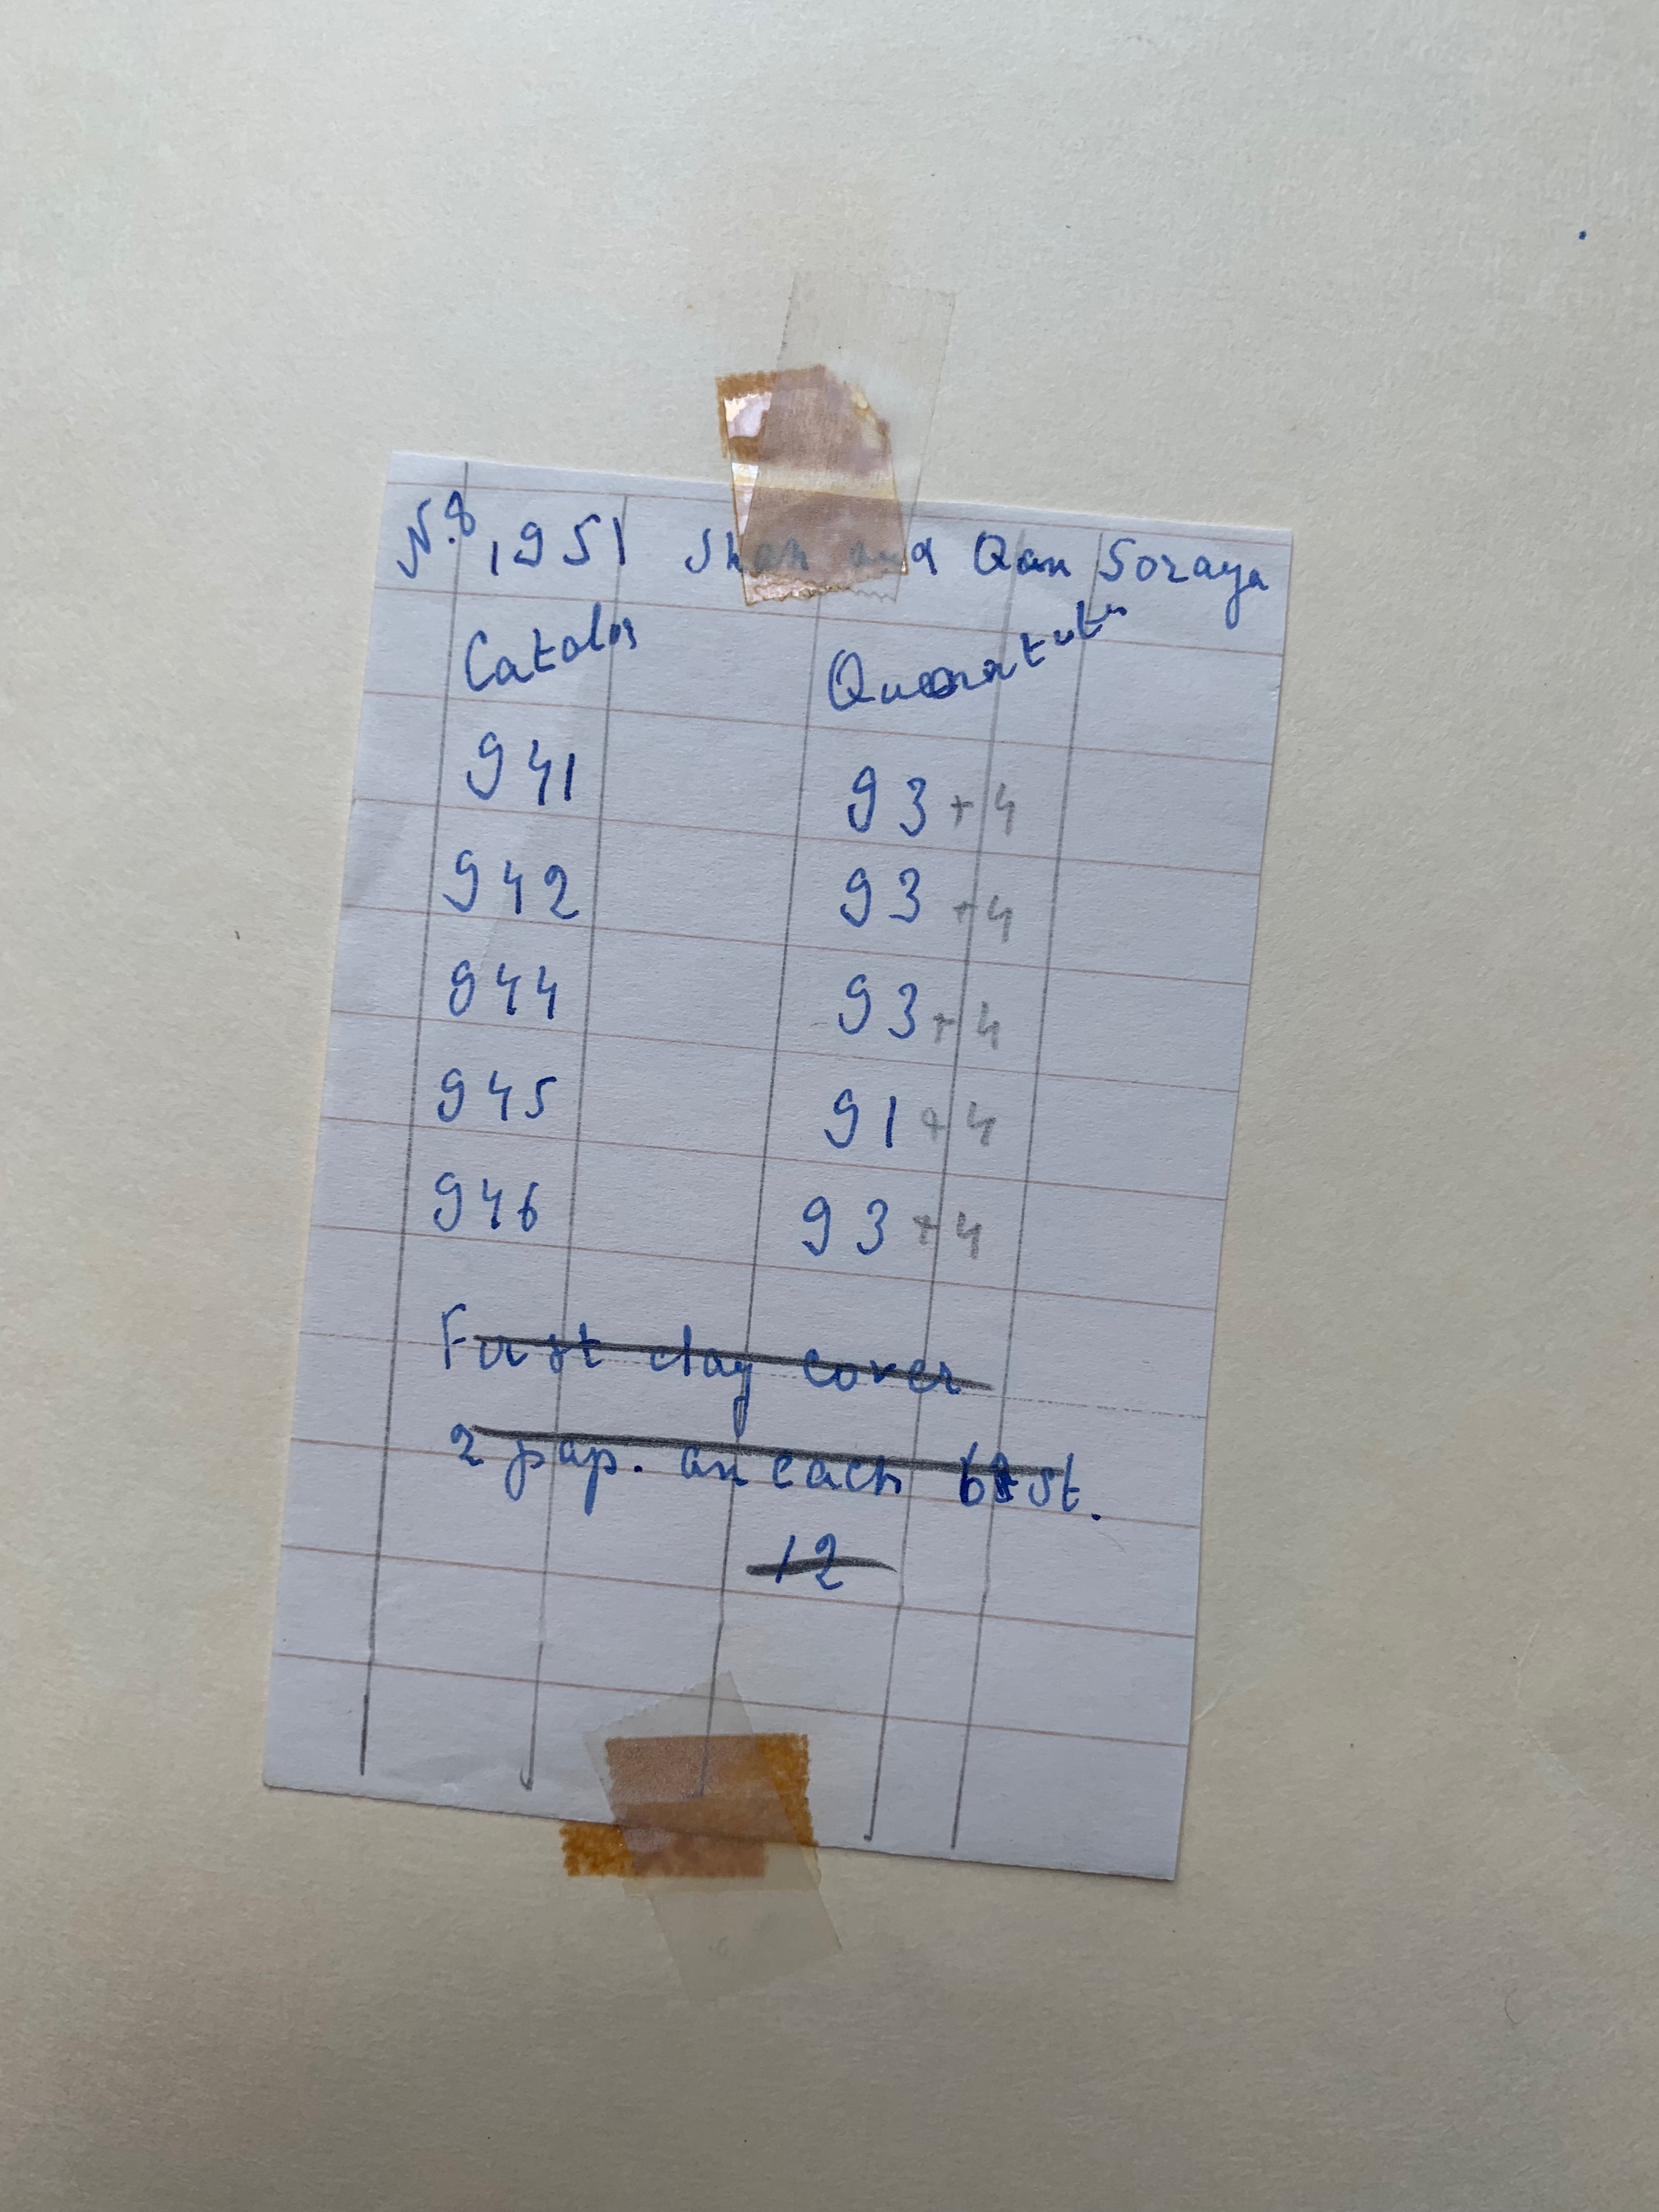 N.8 1951 Shah and Qan Soraya
Catalog
941 93+4
942 93+4
944 93+4
945 91+4
946 93+4
First day cover
2 pap. an each st.
12